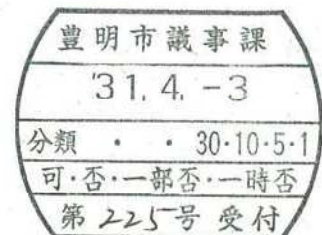 豊明市議事課
'31. 4. -3
分類 ・ ・ 30・10・5・1
可・否・一部否・一時否
第225号 受付